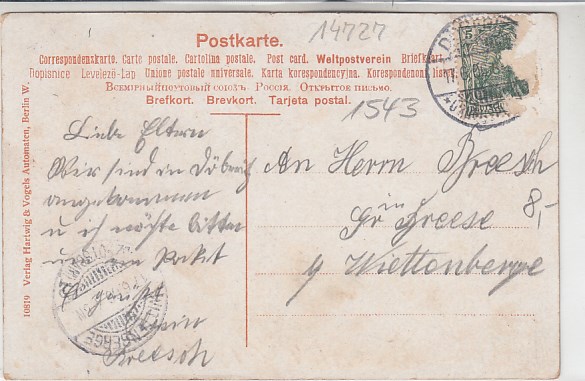 14727
Postkarte.
Correspondenzkarte. Carte postale. Cartolina postale. Post card. Weltpostverein Briefkaart
Dopisnice Levelező-Lap Unione postale universale. Karta korespondencyjna. Korespondenční lístek
Всемірный почтовый союзъ. Россія. Открытое письмо.
Brefkort. Brevkort. Tarjeta postal.
1543
Liebe Eltern
Wir sind in Döberitz
angekommen
u ich möchte bitten
um Packet
Es grüsst
Breesch
An Herrn Breesch
in
Gr Breese
8,-
Wittenberge
10819 Verlag Hartwig & Vogels Automaten, Berlin W.